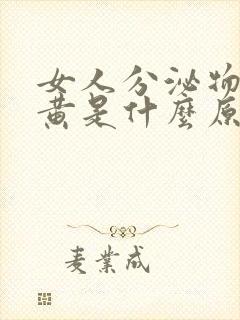 女人分泌物
黄是什麼原
麦業成